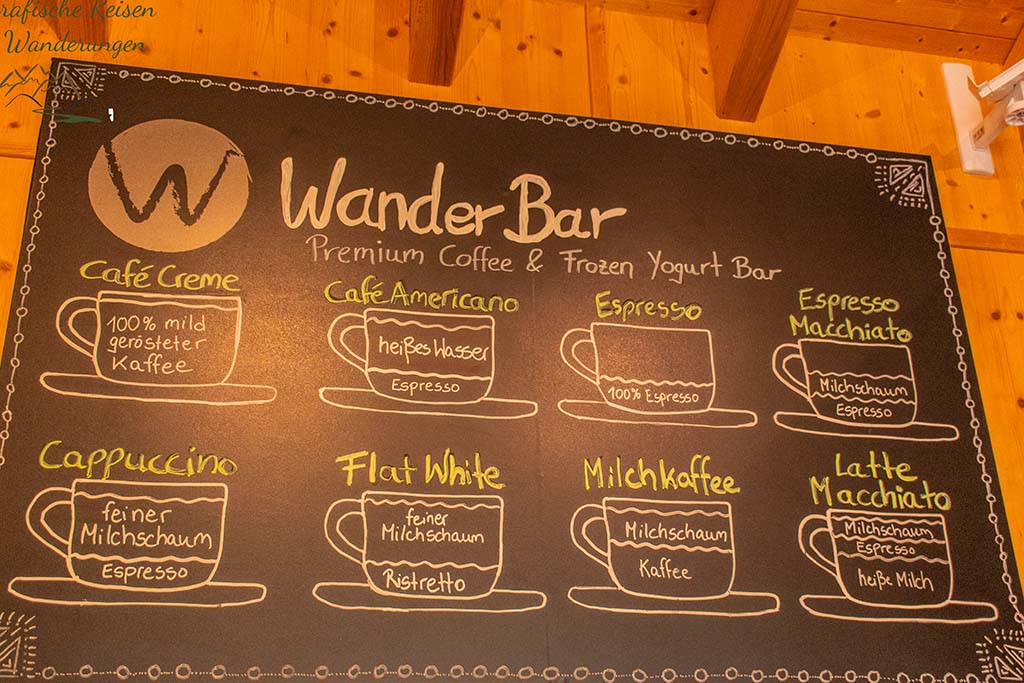 grafische Reisen
Wanderungen
W
WanderBar
Premium Coffee & Frozen Yogurt Bar
Café Creme
100% mild
gerösteter
Kaffee
Café Americano
heißes Wasser
Espresso
Espresso
100% Espresso
Espresso
Macchiato
Milchschaum
Espresso
Cappuccino
feiner
Milchschaum
Espresso
Flat White
feiner
Milchschaum
Ristretto
Milchkaffee
Milchschaum
Kaffee
Latte
Macchiato
Milchschaum
Espresso
heiße Milch